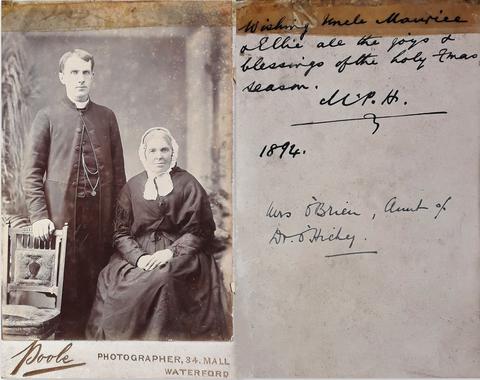 Poole
PHOTOGRAPHER, 34. MALL
WATERFORD
Wishing Uncle Maurice
& Ellie all the joys &
blessings of the holy Xmas
season.
M.P.H.
1894.
Mrs O'Brien, Aunt of
Dr. O'Hickey.